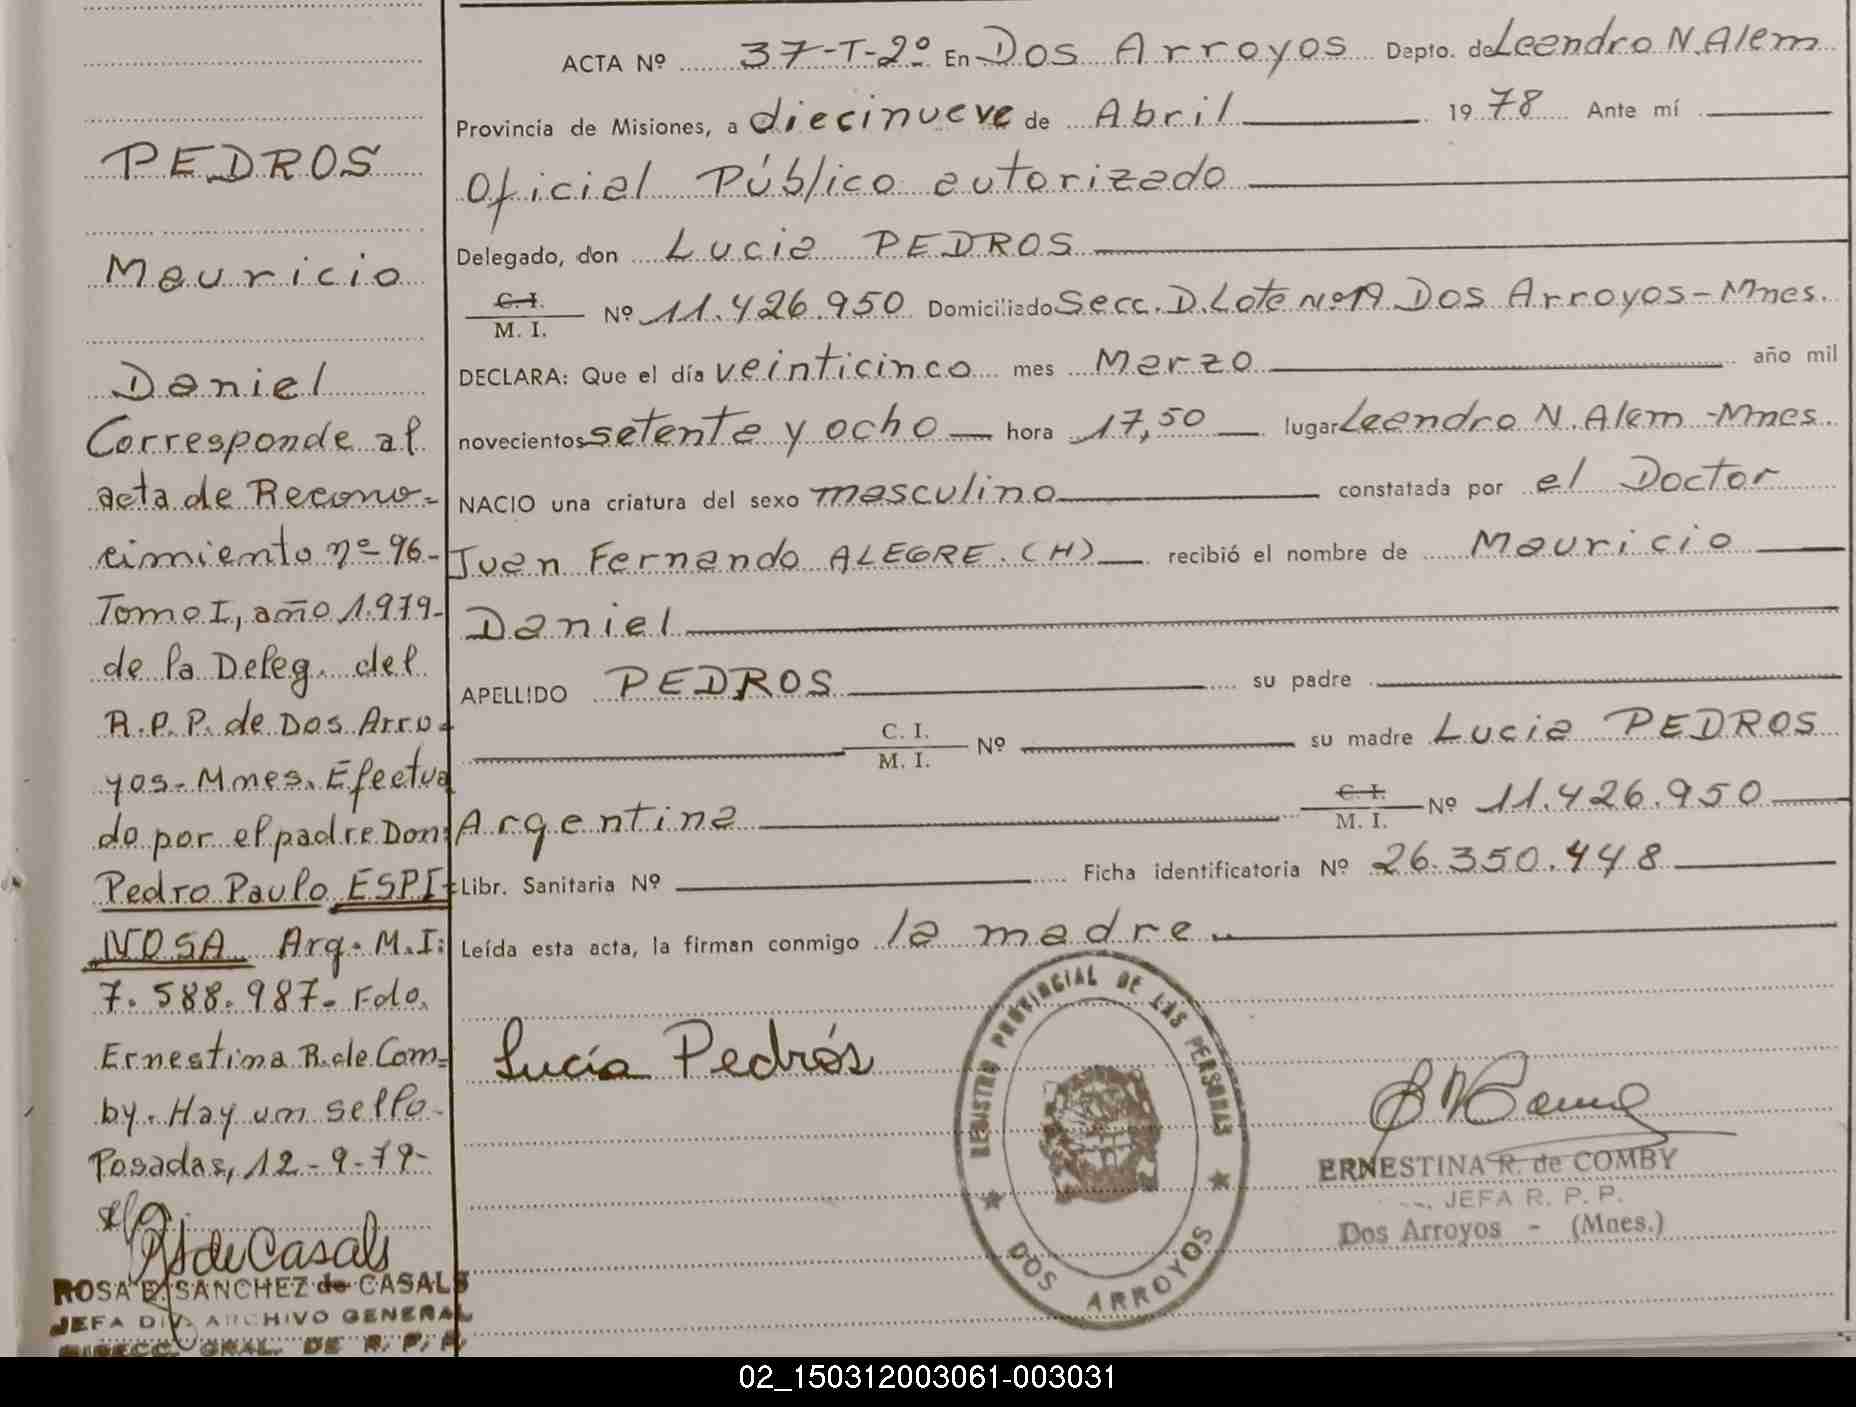 PEDROS
Mauricio
Daniel
Corresponde al
acta de Recono=
cimiento nº 96-
Tomo I, año 1.979-
de la Deleg. del
R.P.P. de Dos Arro=
yos- Mnes. Efectua
do por el padre Don:
Pedro Paulo ESPI=
NOSA Arg. M.I:
7.588.987- Fdo.
Ernestina R. de Com=
by. Hay un sello-
Posadas, 12-9-79-
RSdeCasals
ROSA E. SANCHEZ de CASALS
JEFA DIV. ARCHIVO GENERAL
DIRECC. GRAL. DE R. P. P.
ACTA Nº 37-T-2º En Dos Arroyos Depto. de Leandro N. Alem
Provincia de Misiones, a diecinueve de Abril 1978 Ante mí
Oficial Público autorizado
Delegado, don Lucia PEDROS
C. I.
M. I. Nº 11.426.950 Domiciliado Secc. D. Lote Nº 19 Dos Arroyos-Mnes.
DECLARA: Que el día veinticinco mes Marzo año mil
novecientos setenta y ocho hora 17,50 lugar Leandro N. Alem-Mnes.
NACIO una criatura del sexo masculino constatada por el Doctor
Juan Fernando ALEGRE. (H) recibió el nombre de Mauricio
Daniel
APELLIDO PEDROS su padre
C. I.
M. I. Nº su madre Lucia PEDROS
Argentina C. I.
M. I. Nº 11.426.950
Libr. Sanitaria Nº Ficha identificatoria Nº 26.350.448
Leída esta acta, la firman conmigo la madre.
Lucía Pedrós
REGISTRO PROVINCIAL DE LAS PERSONAS
DOS ARROYOS
ERNESTINA R. de COMBY
JEFA R. P. P.
Dos Arroyos - (Mnes.)
02_150312003061-003031